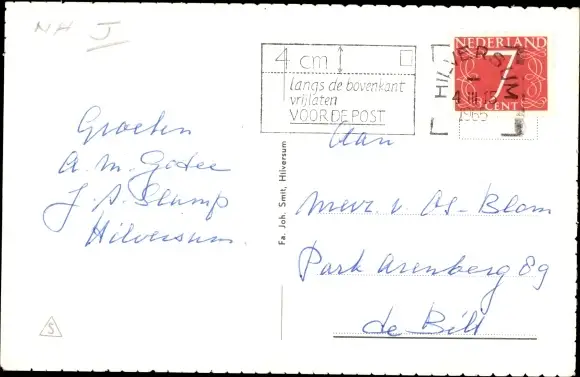 NH J
4 cm
langs de bovenkant
vrijlaten
VOOR DE POST
HILVERSUM
4 III 15
1965
NEDERLAND
7
CENT
Groeten
A. M. Godee
J. A. Slump
Hilversum.
Fa. Joh. Smit, Hilversum
Aan
Mevr. v. Os-Blom
Park Arenberg 89
de Bilt
S